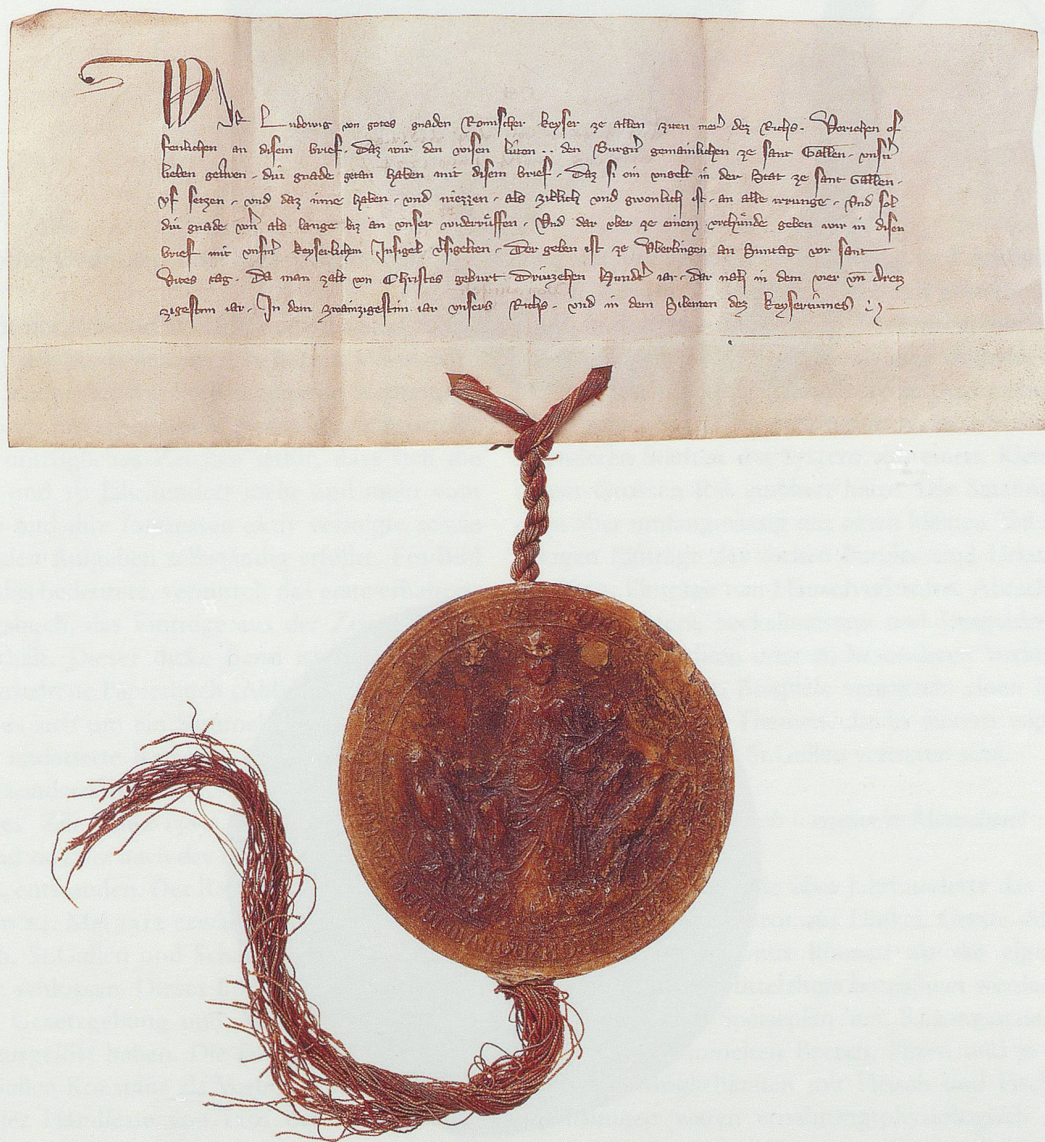 Wir Ludowig von gotes gnaden Romischer keyser ze allen ziten merer dez Richs. Veriehen of
fenlichen an disem brief. Daz wir den wisen luͤten .. den Burgern gemainlichen ze sant Gallen. unsern
lieben getriwen. diu gnade getan haben mit disem brief. Daz si ein ungelt in der Stat ze sant Gallen.
uf setzen. und daz inne haben. und niezzen. als zitlich und gwonlich ist. an alle irrunge. Und sol
diu gnade wern als lange biz an unser widerruͤffen. Und dar uber ze einem urchuͤnde geben wir in disen
brief mit unserm keyserlichem Insigel versigelten. Der geben ist ze Uberlingen an Suntag vor sant
Vites tag. Da man zalt von Christes geburt Driuzehen hundert iar. dar nah in dem vier und dreiz
zigestem iar. In dem zwainzigestem iar unsers Richs. und in dem Sibenten dez keysertuͦmes